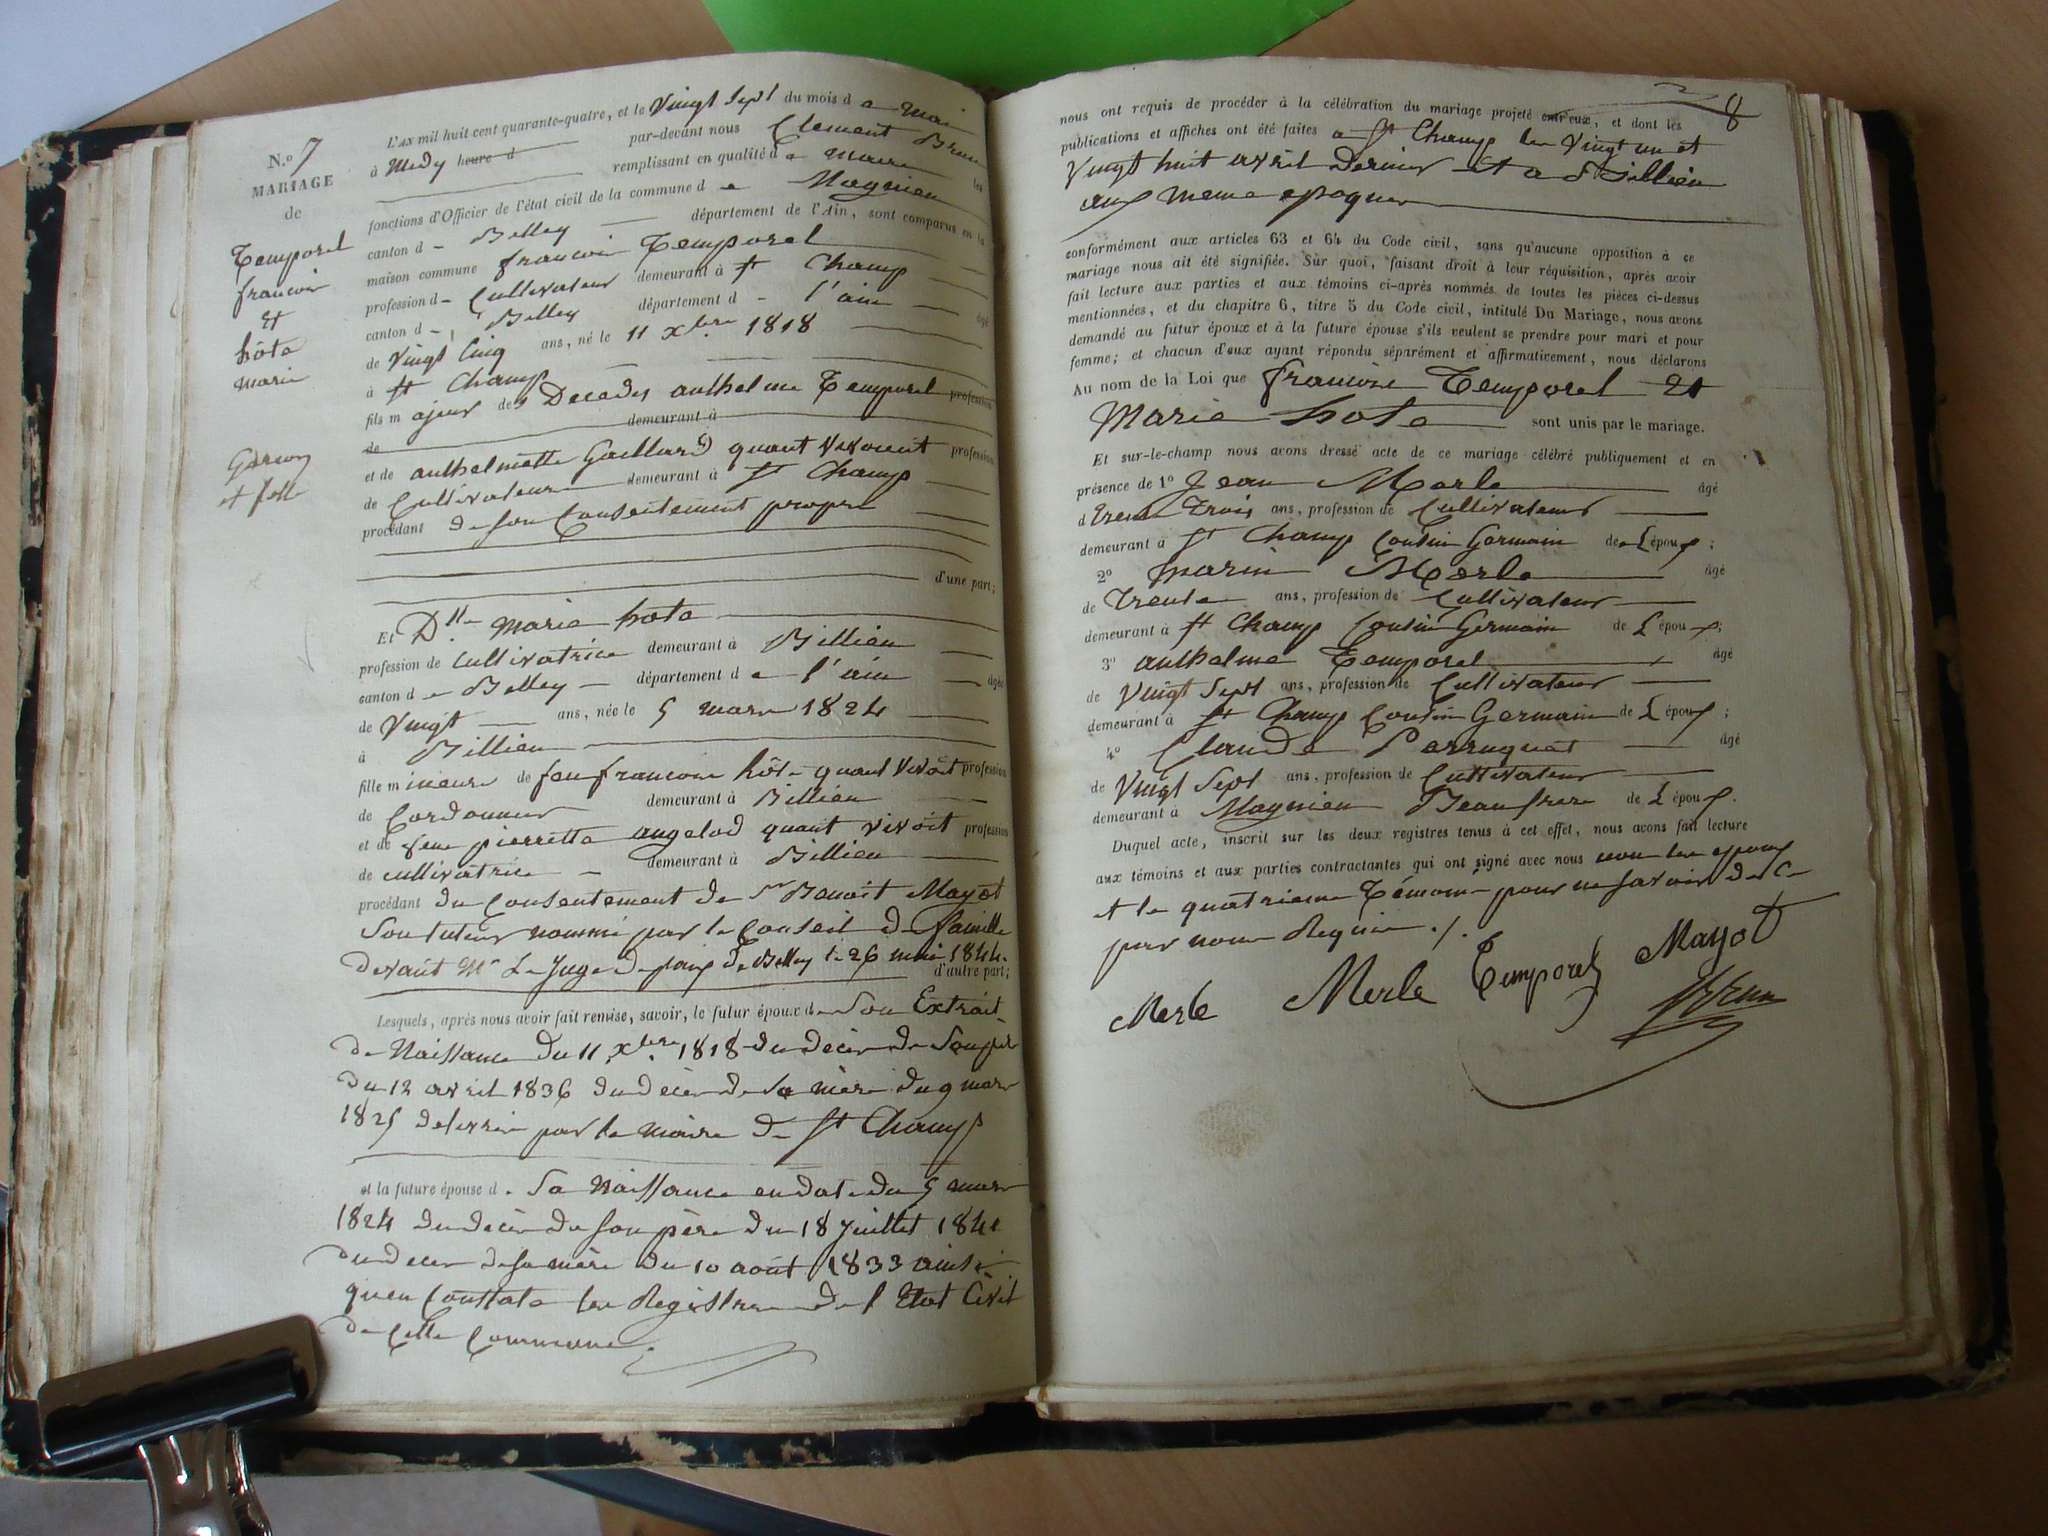 N.o 7
MARIAGE
de
Temporel
francois
Et
hôte
marie
Garçon
et fille
L'AN mil huit cent quarante-quatre, et le Vingt Sept du mois d e mai
à Midy heure d par-devant nous Clement Brun
remplissant en qualité d e maire les
fonctions d'Officier de l'état civil de la commune d e Magnieu
canton d - Belley département de l'Ain, sont comparus en la
maison commune francois Temporel
profession d - Cultivateur demeurant à St Champ
canton d - Belley département d - l'ain âgé
de Vingt Cinq ans, né le 11 Xbre 1818
à St Champ
fils m ajeur de s Décédés anthelme Temporel profession
de demeurant à
et de anthelmette Gaillard quant vivoient profession
de Cultivateurs demeurant à St Champ
procédant de son Consentement propre
d'une part;
Et Dlle marie hôte
profession de Cultivatrice demeurant à Billieu
canton d e Belley département d e l'ain âgée
de Vingt ans, née le 5 mars 1824
à Billieu
fille m ineure de feu francois hôte quant vivoit profession
de Cordonnier demeurant à Billieu
et de feue pierrette angelod quant vivoit profession
de cultivatrice demeurant à Billieu
procédant du Consentement de Sr Benoit Mayot
Son tuteur nommé par le Conseil de famille
devant Mr Le Juge de paix de Belley le 26 mai 1844.
d'autre part;
Lesquels, après nous avoir fait remise, savoir, le futur époux de Son Extrait
de Naissance du 11 Xbre 1818 du décès de Son père
du 12 avril 1836 du décès de Sa mère du 9 mars
1825 délivrés par le maire de St Champ
et la future épouse d e Sa Naissance en date du 5 mars
1824 du décès de Son père du 18 Juillet 1841
du décès de Sa mère du 10 août 1833 ainsi
qu'en Constate les Registres de l'Etat Civil
de Cette Commune.
8
nous ont requis de procéder à la célébration du mariage projeté entr'eux, et dont les
publications et affiches ont été faites a St Champ les Vingt un et
Vingt huit avril dernier et a Billieu
aux meme epoques
conformément aux articles 63 et 64 du Code civil, sans qu'aucune opposition à ce
mariage nous ait été signifiée. Sur quoi, faisant droit à leur réquisition, après avoir
fait lecture aux parties et aux témoins ci-après nommés de toutes les pièces ci-dessus
mentionnées, et du chapitre 6, titre 5 du Code civil, intitulé Du Mariage, nous avons
demandé au futur époux et à la future épouse s'ils veulent se prendre pour mari et pour
femme; et chacun d'eux ayant répondu séparément et affirmativement, nous déclarons
Au nom de la Loi que francois Temporel Et
Marie hote sont unis par le mariage.
Et sur-le-champ nous avons dressé acte de ce mariage célébré publiquement et en
présence de 1o Jean Merle âgé
d Trente Trois ans, profession de Cultivateur
demeurant à St Champ Cousin Germain de L'époux;
2o marin Merle âgé
de Trente ans, profession de Cultivateur
demeurant à St Champ Cousin Germain de L'époux;
3o anthelme Temporel âgé
de Vingt Sept ans, profession de Cultivateur
demeurant à St Champ Cousin Germain de L'époux;
4o Claude Perruquet âgé
de Vingt Sept ans, profession de Cultivateur
demeurant à Magnieu Beaufrere de L'époux.
Duquel acte, inscrit sur les deux registres tenus à cet effet, nous avons fait lecture
aux témoins et aux parties contractantes qui ont signé avec nous non les epoux
et le quatrieme Témoin pour ne savoir de Ce
par nous Requis ./.
Merle Merle Temporel Mayot
Brun